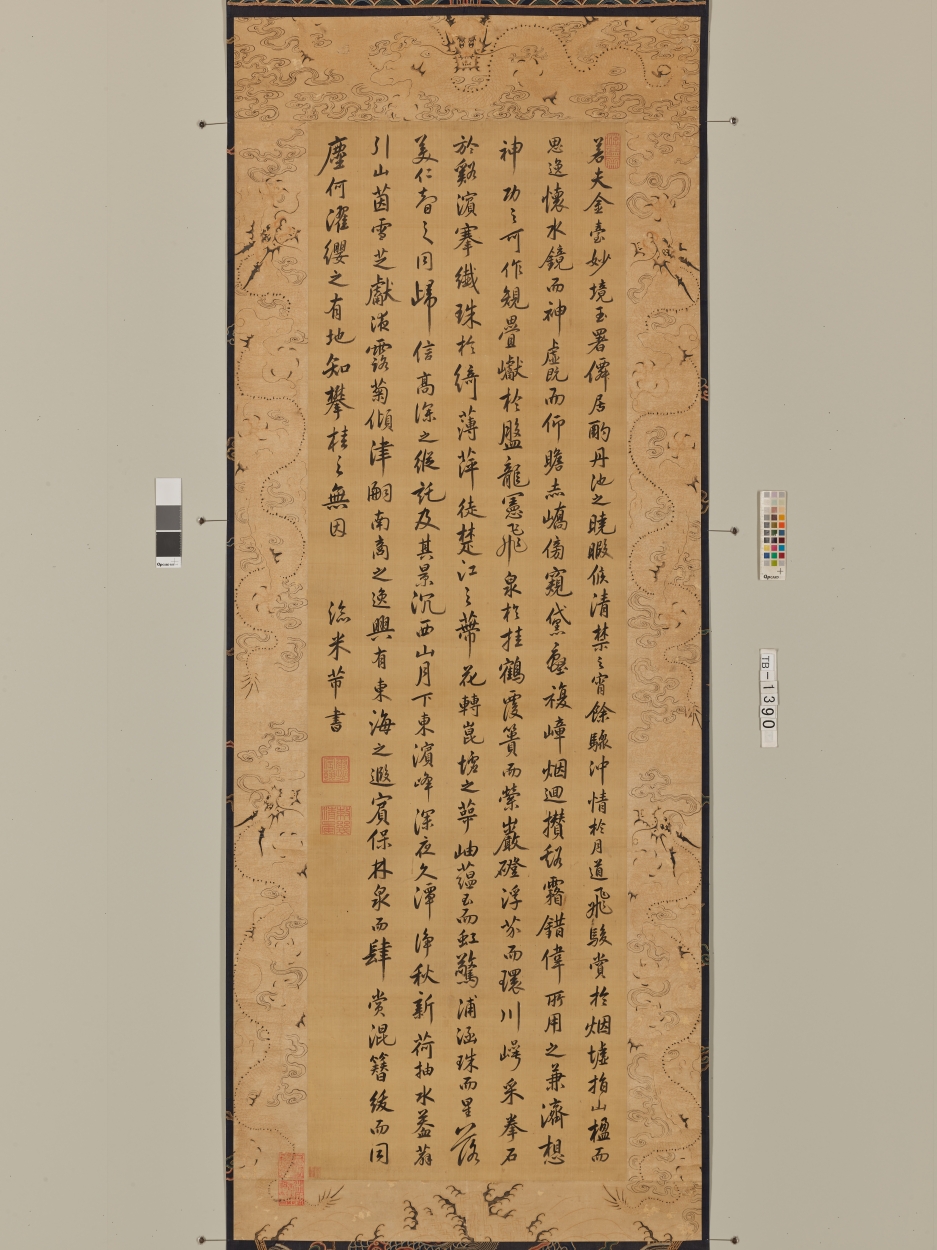 若夫金臺妙境玉署僊居酌丹池之曉暇候清禁之宵餘驟沖情於月道飛駿賞於烟墟指山楹而
思逸懷水鏡而神虛既而仰瞻赤嶠傍窺黛壑複嶂烟迴攢谿霧錯偉所用之兼濟想
神功之可作規疊巘於盤龍憲飛泉於挂鶴覆簣而縈巖磴浮芥而環川崿采拳石
於谿濱搴纖珠於綺薄萍徒楚江之蘤花轉崑墟之蕚岫蘊玉而虹驚浦涵珠而星落
美仁智之同歸信高深之縱託及其景沉西山月下東濱峰深夜久潭淨秋新荷抽水蓋薜
引山茵雪芝獻液露菊傾津嗣南商之逸興有東海之遐賓保林泉而肆賞混簪紱而同
塵何濯纓之有地知攀桂之無因
臨米芾書
TB-1390